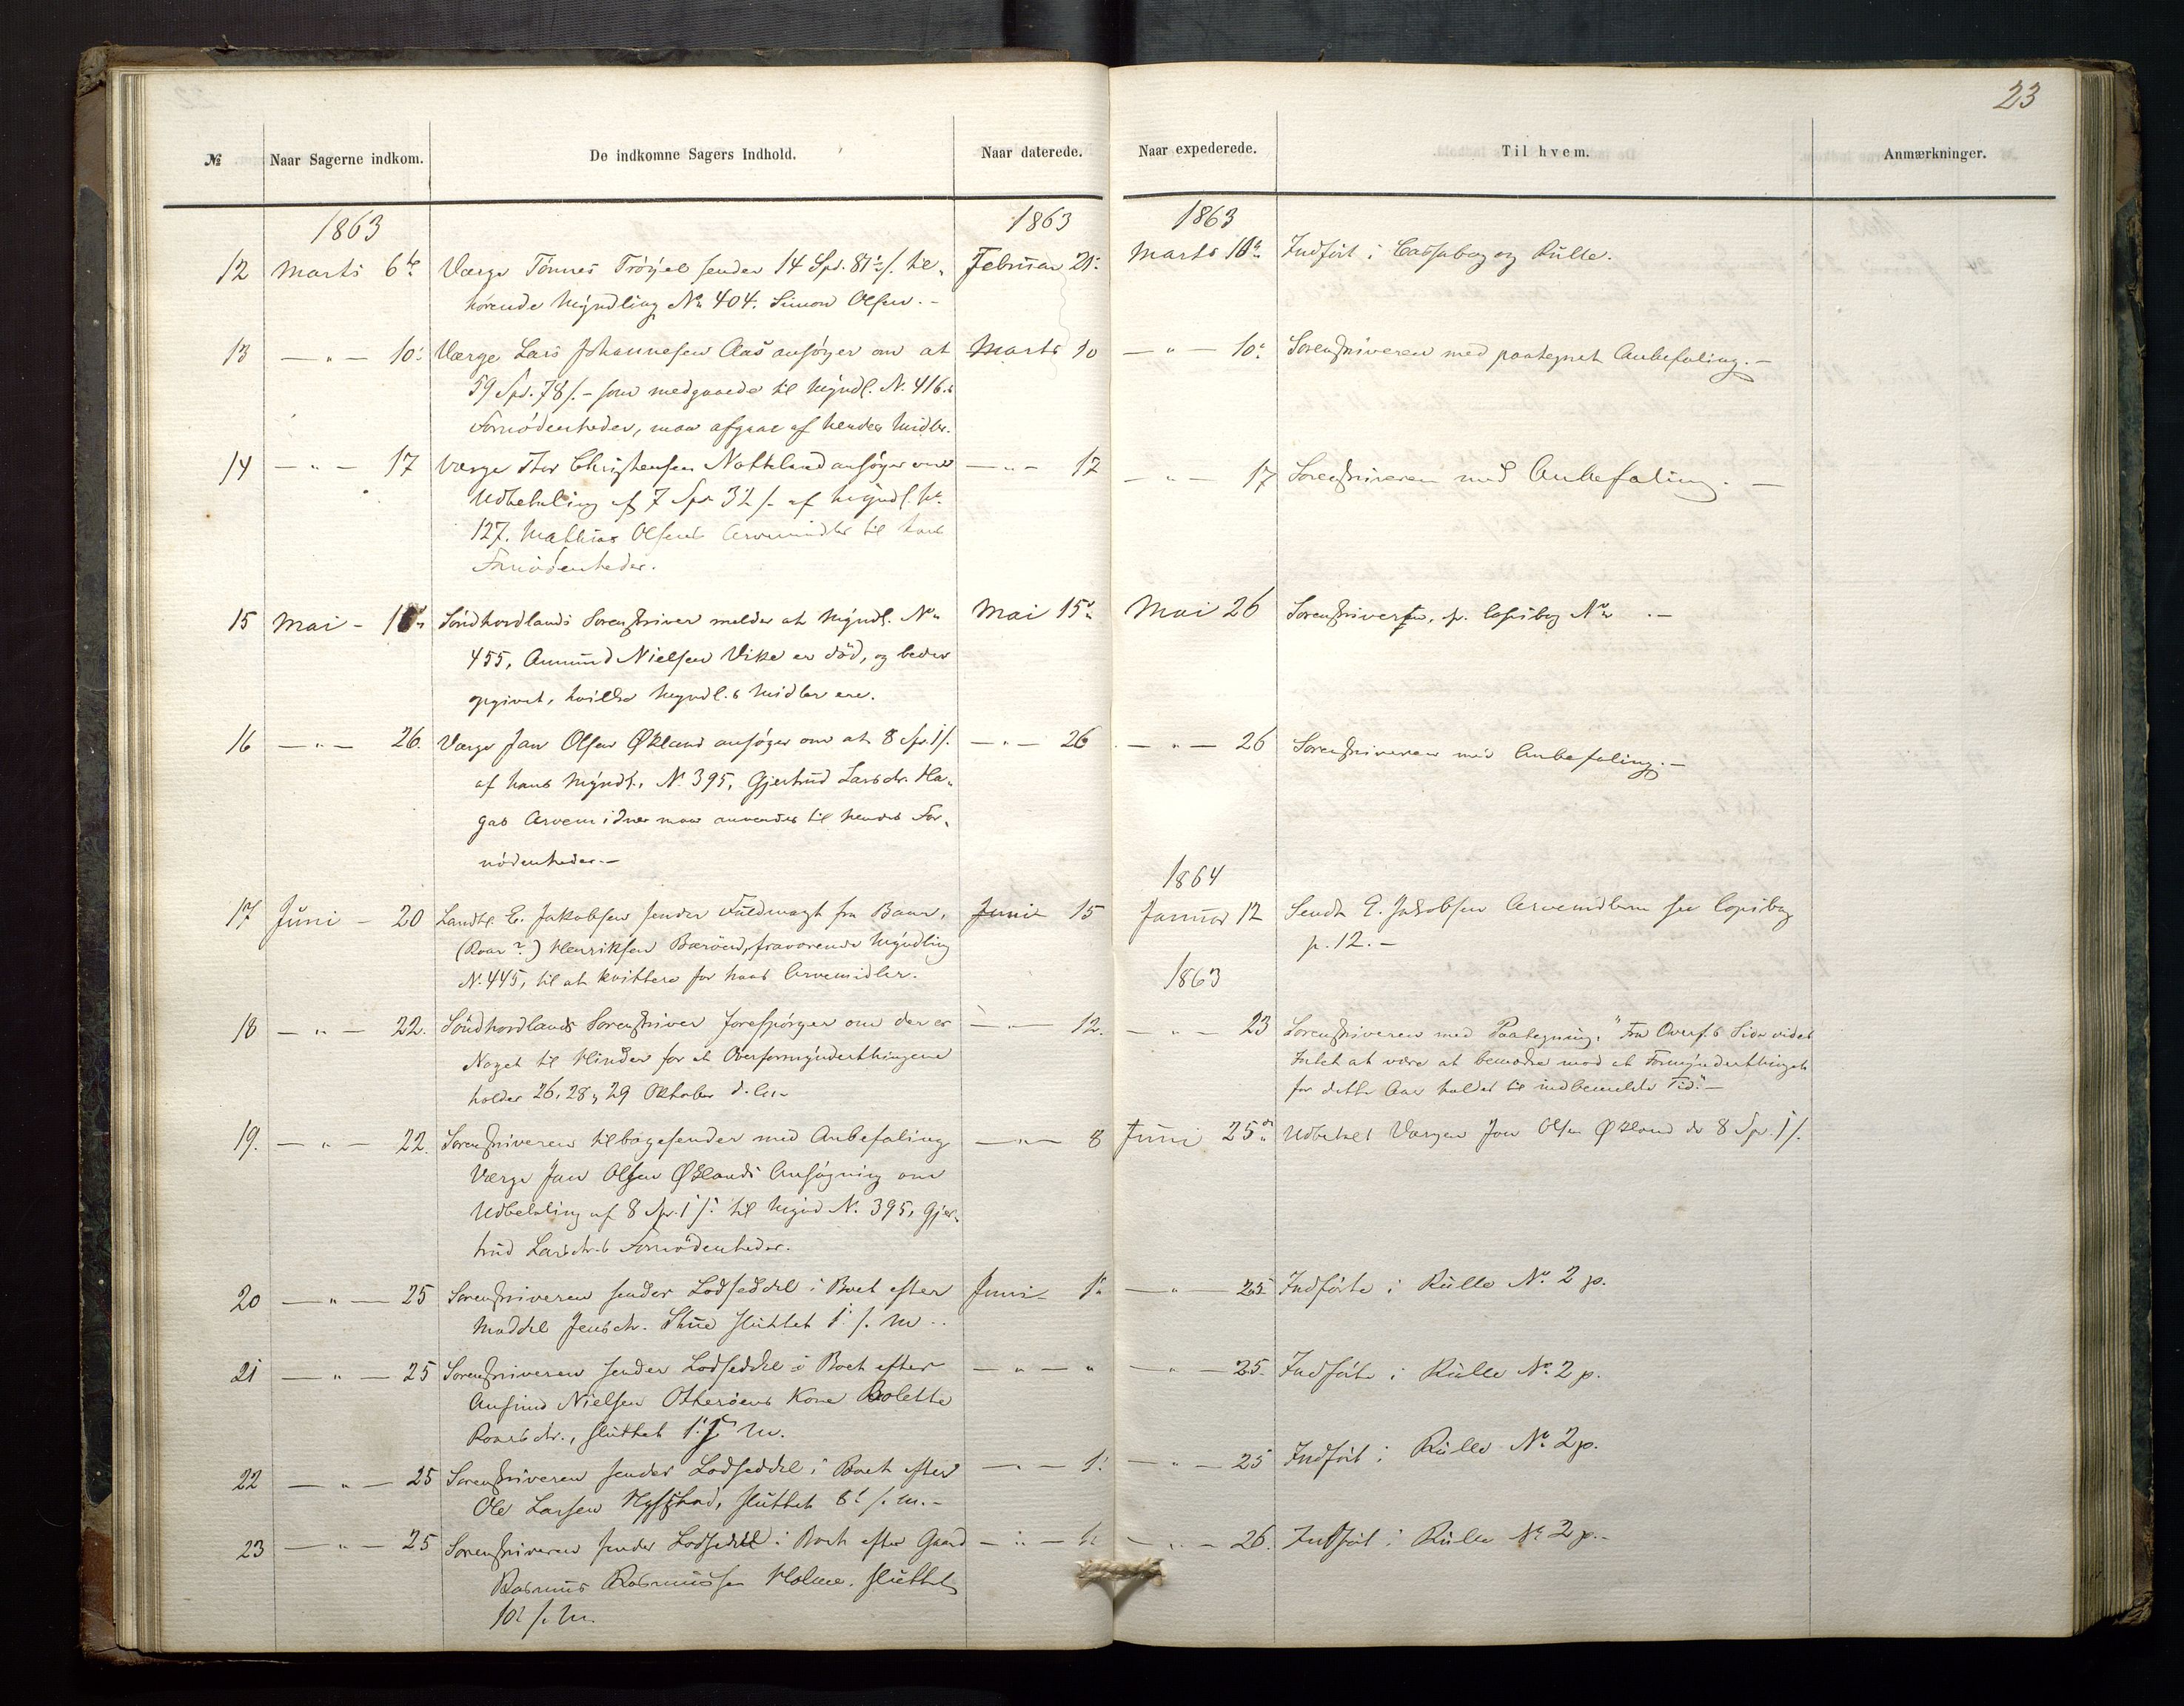 23
№ Naar Sagerne indkom. De indkomne Sagers Indhold. Naar daterede. Naar expederede. Til hvem. Anmærkninger.
1863 1863 1863
12 Marts 6te Værge Tönnes Tröyel sender 14 Spd. 81½ s. til- Februar 21. Marts 10de Indfört i Cassabog og Rulle.
hörende Myndling No 404. Simon Olsen.-
13 — " — 10. Værge Lars Johannesen Aas ansöger om at Marts 10 — " — 10. Sorenskriveren med paategnet Anbefaling.-
59 Spd. 78 s.- som medgaaede til Myndl. N. 416.s
Fornödenheder, maa afgaae af hendes Midler.
14 — " — 17 Værge Thor Christensen Natteland ansöger om — " — 17 — " — 17 Sorenskriveren med Anbefaling. —
Udbetaling af 7 Spd 32 s. af Myndl. No
127. Mathias Olsens Arvemidler til hans
Fornödenheder.
15 Mai - Söndhordlands Sorenskriver melder at Myndl. No Mai 15de Mai 26 Sorenskriveren, p. Copibog No .-
455, Amund Nielsen Vike er död, og beder
opgivet, hvilke Myndl.s Midler ere.
16 — " — 26. Værge Jan Olsen Økland ansöger om at 8 Sp. 1 s. — " — 26 — " — 26 Sorenskriveren med Anbefaling.-
af hans Myndl. No 395, Gjertrud Larsdr. Ha-
gas Arvemidler maa anvendes til hendes For-
nödenheder.-
1864
17 Juni - 20 Landh. E. Jakobsen sender Fuldmagt fra Baar, Juni 15 Januar 12 Sendt E. Jakobsen Arvemidlerne see Copibog
(Roar?) Henriksen Beröen, fraværende Myndling p. 12.-
N. 445, til at kvittere for hans Arvemidler.
1863
18 — " — 22. Söndhordlands Sorenskriver forespörger om der er — " — 12. — " — 23 Sorenskriveren med Paategning: "Fra Overf.s Side vides
Noget til Hinder for at Overformynderthingene Intet at være at bemærke mod at Formynderthinget
holdes 26, 28, 29 Oktober d. A.- for dette Aar holdes til indbemeldte Tid".-
19. — " — 22. Sorenskriveren tilbagesender med Anbefaling — " — 8 Juni 25de Udbetalt Værgen Jan Olsen Økland de 8 Sp. 1 s.
Værge Jan Olsen Øklands Ansögning om
Udbetaling af 8 Sp. 1 s. til Mynd N. 395, Gjer-
trud Larsdr.s Fornödenheder.
20 — " — 25 Sorenskriveren sender Lodseddel i Boet efter Juni 1. — " — 25 Indförte i Rulle No. 2 p.
Maddel Jensdr. Stue sluttet 1. s. M..
21 — " — 25 Sorenskriveren sender Lodseddel i Boet efter — " — " — " — 25. Indförte i Rulle No. 2 p.
Anfind Nielsen Otteröens Kone Bolette
Roarsdr., sluttet 1. s. M.
22 — " — 25 Sorenskriveren sender Lodseddel i Boet efter — " — 1. — " — 25 Indfört i Rulle No. 2 p.
Ole Larsen sluttet 8. s. M.-
23 — " — 25 Sorenskriveren sender Lodseddel i Boet efter Gaard — " — " — 26. Indfört i Rulle No. 2 p.-
Rasmus Rasmussen Holme, sluttet
10. s. M.